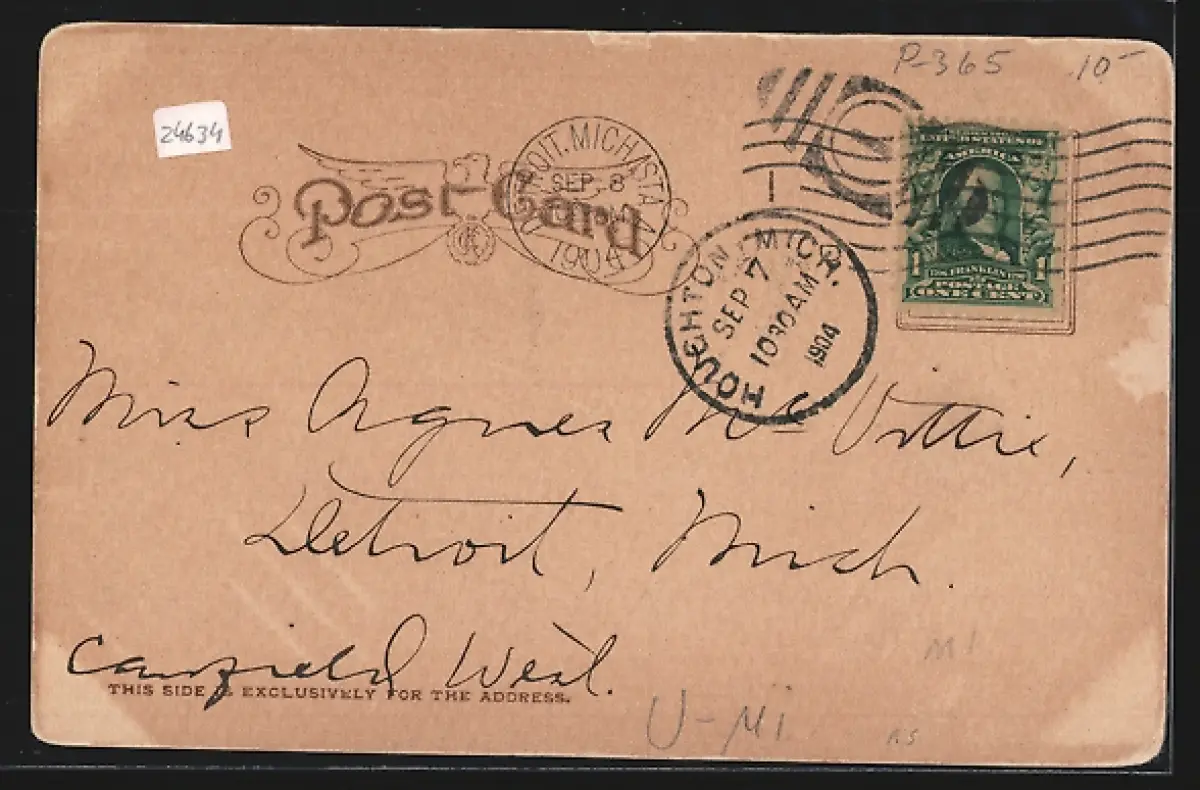 P-365 10-
24634
Post Card
DETROIT, MICH. STA.
SEP. 8
1904
HOUGHTON, MICH.
SEP 7
1030AM
1904
UNITED STATES OF
AMERICA
FRANKLIN
POSTAGE
1 ONE CENT 1
Miss Agnes McVittie,
Detroit, Mich.
Canfield West.
THIS SIDE IS EXCLUSIVELY FOR THE ADDRESS.
MI
U-MI